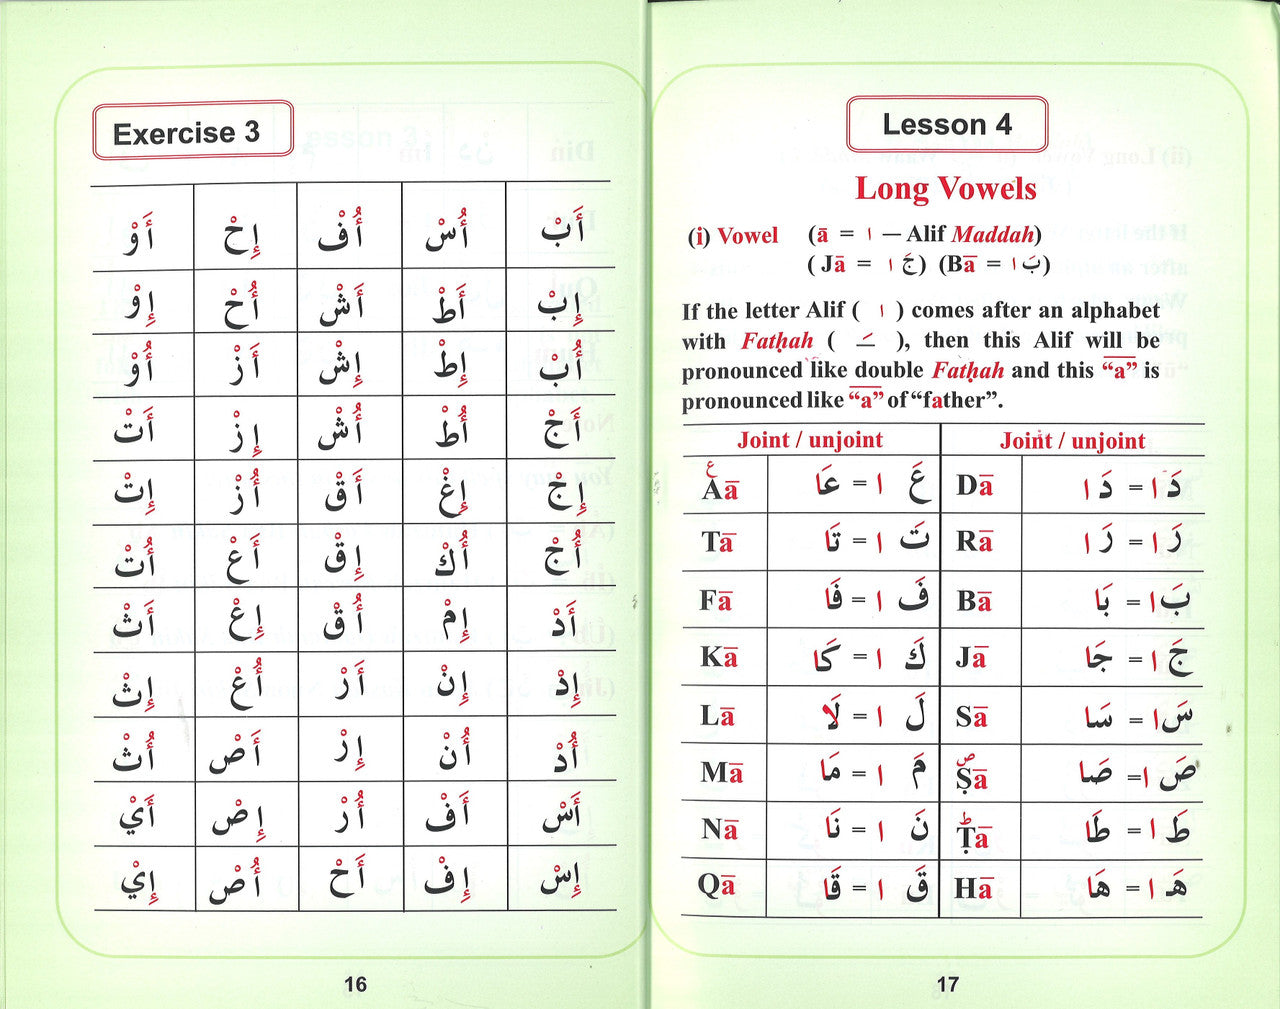 Exercise 3
أَبْ أُسْ أُفْ إِحْ أَوْ
إِبْ أَطْ أَشْ أُحْ إِوْ
أُبْ إِطْ إِشْ أَزْ أُوْ
أَجْ أُطْ أُشْ إِزْ أَتْ
إِجْ إِغْ أَقْ أُزْ إِتْ
أُجْ أُكْ إِقْ أَعْ أُتْ
أَدْ إِمْ أُقْ إِعْ أَثْ
إِدْ إِنْ أَرْ أُعْ إِثْ
أُدْ أُنْ إِرْ أَصْ أُثْ
أَسْ أَفْ أُرْ إِصْ أَيْ
إِسْ إِفْ أَحْ أُصْ إِيْ
16
Lesson 4
Long Vowels
(i) Vowel (ā = ا — Alif Maddah)
( Jā = جَ ا ) (Bā = بَ ا )
If the letter Alif ( ا ) comes after an alphabet
with Fatḥah ( ـَ ), then this Alif will be
pronounced like double Fatḥah and this “ā” is
pronounced like “ā” of “father”.
Joint / unjoint Joint / unjoint
Aā عَ ا = عَا Dā دَ ا = دَا
Tā تَ ا = تَا Rā رَ ا = رَا
Fā فَ ا = فَا Bā بَ ا = بَا
Kā كَ ا = كَا Jā جَ ا = جَا
Lā لَ ا = لَا Sā سَ ا = سَا
Mā مَ ا = مَا Ṣā صَ ا = صَا
Nā نَ ا = نَا Ṭā طَ ا = طَا
Qā قَ ا = قَا Hā هَ ا = هَا
17